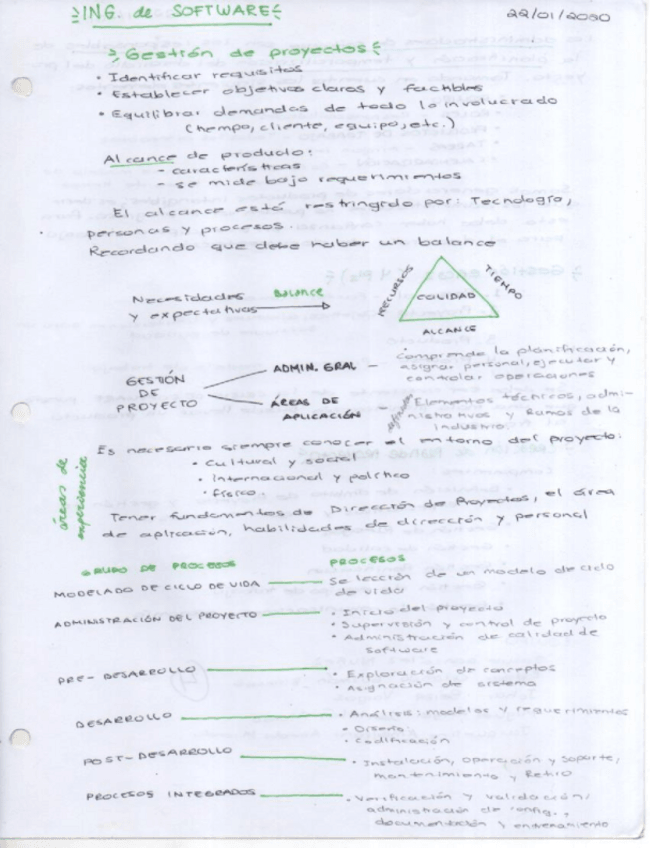 ING. de SOFTWARE
22/01/2020
Gestión de proyectos
• Identificar requisitos
• Establecer objetivos claros y factibles
• Equilibrar demandas de todo lo involucrado
(tiempo, cliente, equipo, etc.)
Alcance de producto:
- características
- se mide bajo requerimientos
El alcance está restringido por: Tecnología,
personas y procesos.
Recordando que debe haber un balance
Necesidades
y expectativas
BALANCE
RECURSOS
TIEMPO
CALIDAD
ALCANCE
GESTIÓN
DE
PROYECTO
ADMIN. GRAL -
Comprende la planificación,
asignar personal, ejecutar y
controlar operaciones
ÁREAS DE
APLICACIÓN -
Elementos técnicos, admi-
nistrativos y Ramas de la
industria
áreas de
experiencia
Es necesario siempre conocer el entorno del proyecto:
• Cultural y social
• internacional y político
• físico
Tener fundamentos de Dirección de Proyectos, el área
de aplicación, habilidades de dirección y personal
GRUPO DE PROCESOS
PROCESOS
MODELADO DE CICLO DE VIDA
Selección de un modelo de ciclo
de vida
ADMINISTRACIÓN DEL PROYECTO
• Inicio del proyecto
• Supervisión y control de proyecto
• Administración de calidad de
Software
PRE-DESARROLLO
• Exploración de conceptos
• Asignación de sistema
DESARROLLO
• Análisis: modelos y requerimientos
• Diseño
• Codificación
POST-DESARROLLO
• Instalación, operación y soporte,
mantenimiento y Retiro
PROCESOS INTEGRADOS
• Verificación y validación,
administración de config.,
documentación y entrenamiento